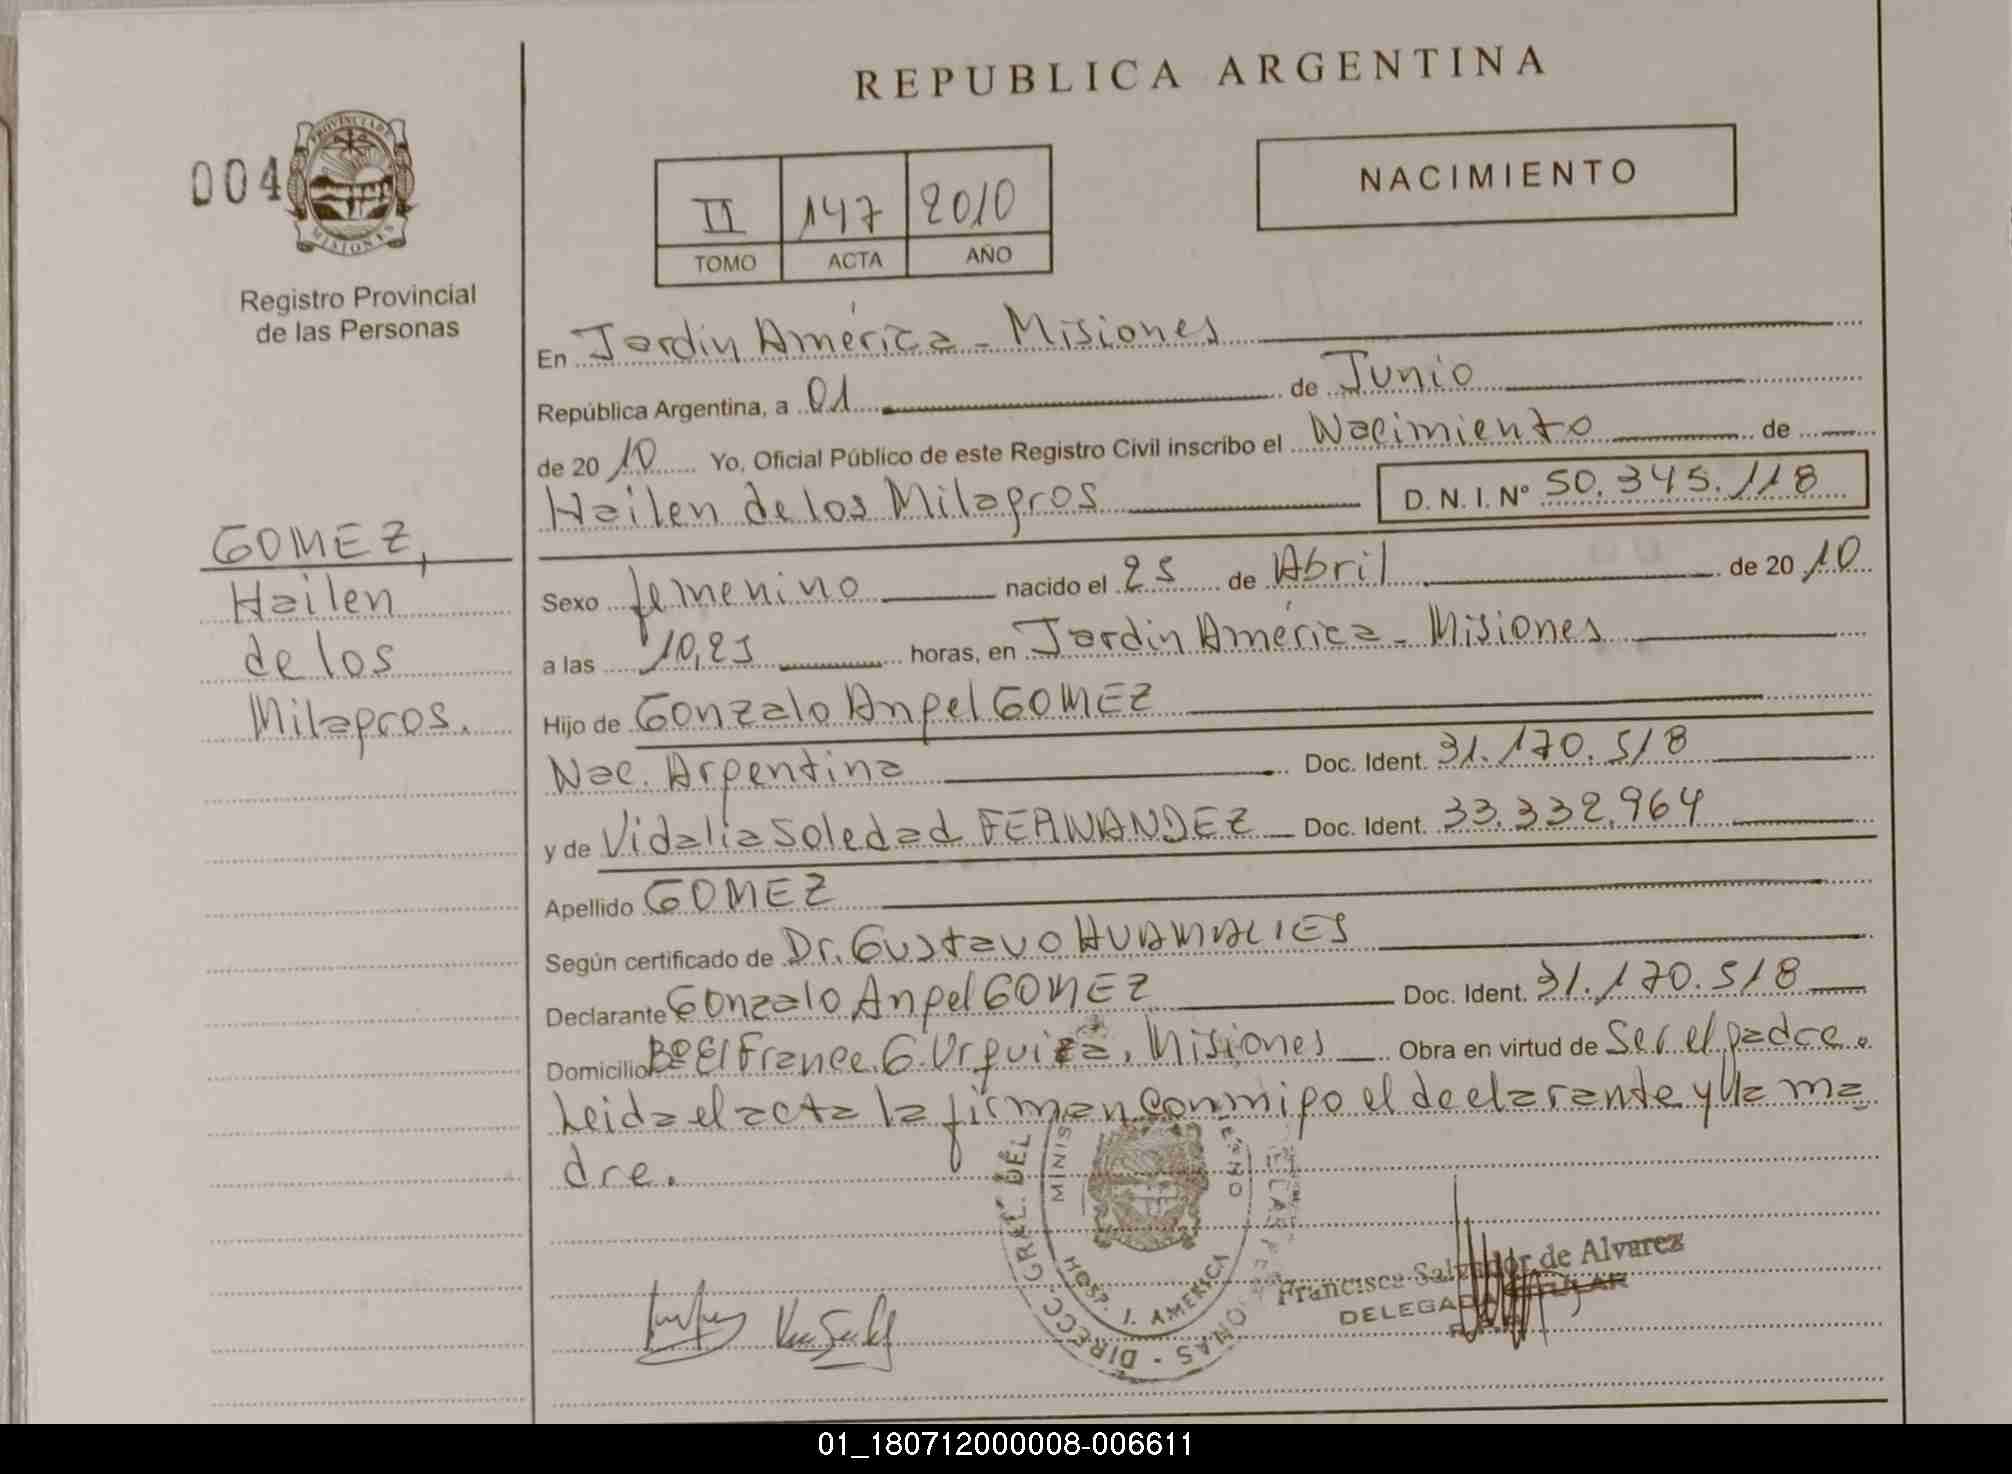 REPUBLICA ARGENTINA
004
PROVINCIA DE
MISIONES
Registro Provincial
de las Personas
II 147 2010
TOMO ACTA AÑO
NACIMIENTO
GOMEZ,
Hailen
de los
Milagros.
En Jardín América - Misiones
República Argentina, a 01 de Junio
de 2010 Yo, Oficial Público de este Registro Civil inscribo el Nacimiento de
Hailen de los Milagros D. N. I. Nº 50.345.118
Sexo femenino nacido el 25 de Abril de 2010
a las 10,25 horas, en Jardín América - Misiones
Hijo de Gonzalo Angel GOMEZ
Nac. Argentina Doc. Ident. 31.170.518
y de Vidalia Soledad FERNANDEZ Doc. Ident. 33.332.964
Apellido GOMEZ
Según certificado de Dr. Gustavo HUAMALIES
Declarante Gonzalo Angel GOMEZ Doc. Ident. 31.170.518
Domicilio Bº El France. G. Urquiza, Misiones Obra en virtud de Ser el padre.
Leida el acta la firman conmigo el declarante y la ma
dre.
DIRECC. GRAL. DEL
MINIS
HOSP. J. AMERICA
Francisca Salvador de Alvarez
DELEGADA TITULAR
01_180712000008-006611